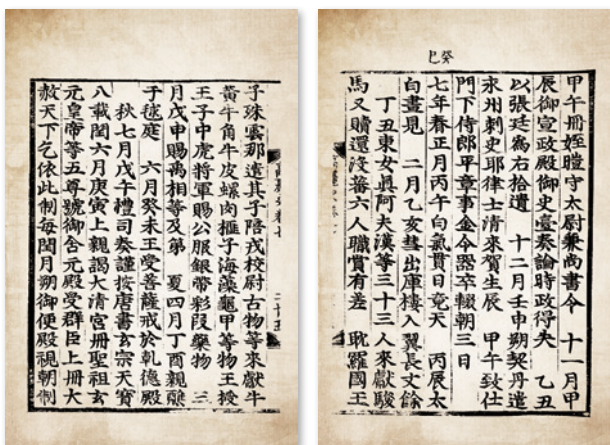 癸巳
甲午冊姪暟守太尉兼尚書令 十一月甲
辰御宣政殿御史臺奏論時政得失 乙丑
以張廷爲右拾遺 十二月壬申朔契丹遣
永州刺史耶律士清來賀生辰 甲午致仕
門下侍郎平章事金令器卒輟朝三日
七年春正月丙午白氣貫日竟天 丙辰太
白晝見 二月乙亥彗出庫樓入翼長丈餘
丁丑東女眞阿夫漢等三十三人來獻駿
馬又贖還沒蕃六人職賞有差 耽羅國王
子殊雲那遣其子陪戎校尉古物等來獻牛
黃牛角牛皮螺肉榧子海藻龜甲等物王授
王子中虎將軍賜公服銀帶彩段藥物 三
月戊申賜禹相等及第 夏四月丁酉親醮
于毬庭 六月癸未王受菩薩戒於乾德殿
秋七月戊午禮司奏謹按唐書玄宗天寶
八載閏六月庚寅上親謁大清宮冊聖祖玄
元皇帝等五尊號御含元殿受群臣上冊大
赦天下乞依此制每閏月朔御便殿視朝制